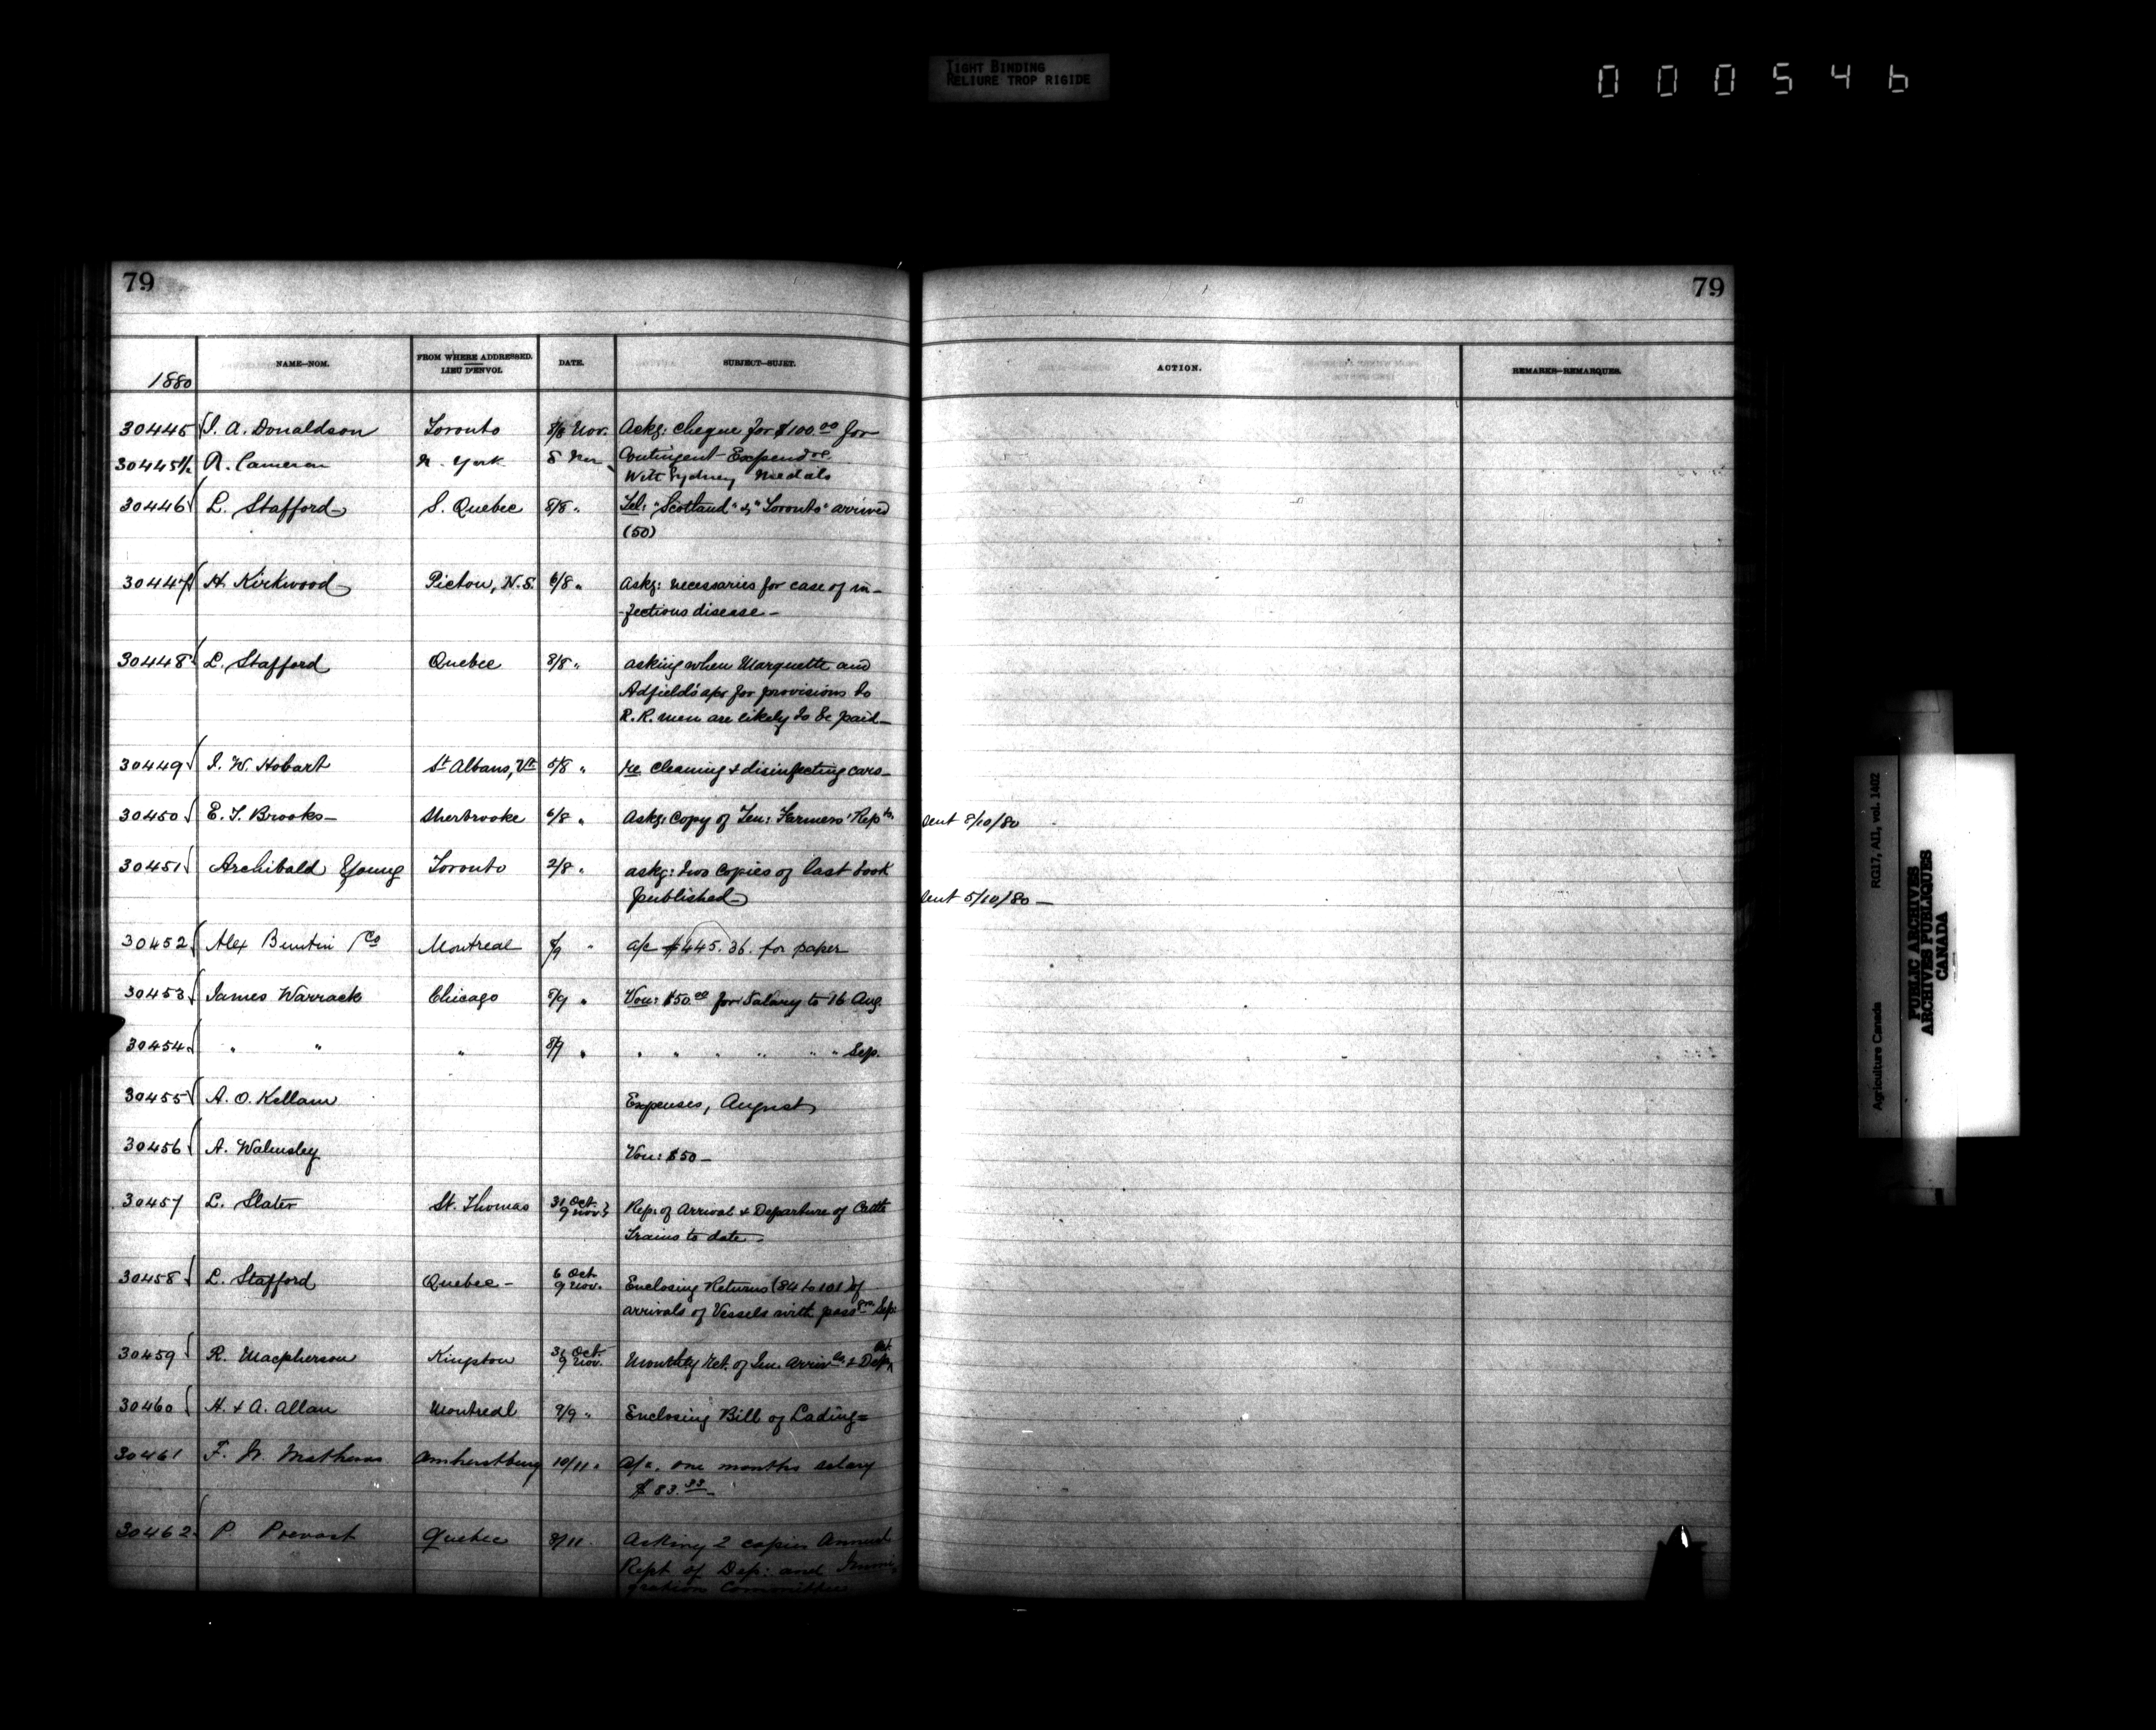 TIGHT BINDING
RELIURE TROP RIGIDE
000546
79
79
1880
NAME—NOM.
FROM WHERE ADDRESSED.
LIEU D'ENVOI.
DATE.
SUBJECT—SUJET.
ACTION.
REMARKS—REMARQUES.
30445 J. A. Donaldson Toronto 8/8 Nov. Askg: cheque for $100.00 for
Contingent Expendre.
30445½ R. Cameron N. York 8 Nov
With Sydney Medals
30446 L. Stafford S. Quebec 8/8 " Tel: "Scotland" & "Toronto" arrived
(50)
30447 H. Kirkwood Pictou, N.S. 6/8 " Askg: necessaries for case of in-
-fectious disease-
30448 L. Stafford Quebec 8/8 " asking when Marquette and
for provisions to
R. R. men are likely to be paid-
30449 J. W. Hobart St Albans, Vt 5/8 " re cleaning & disinfecting cars-
30450 E. T. Brooks- Sherbrooke 6/8 " Askg: Copy of Ten: Farmers' Repts. sent 8/10/80
30451 Archibald Young Toronto 2/8 " askg: two copies of last book
published- sent 5/10/80 —
30452 Alex Buntin / Co Montreal 8/9 " a/c $445.36. for paper
30453 James Warrack Chicago 8/9 " Vou: $50.00 for Salary to 16 Aug.
30454 " " " 8/9 " " " " " " " Sep.
30455 A. O. Kellam Expenses, August
30456 A. Walmsley Vou: $50-
30457 L. Slater St. Thomas 31 Oct. 9 Nov. Rep: of Arrival & Departure of Cattle
Trains to date.
30458 L. Stafford Quebec- 6 Oct 9 Nov. Enclosing Returns (84 to 101) of
arrivals of Vessels with passgrs. Sep:
30459 R. Macpherson Kingston 31 Oct. 9 Nov. Monthly Ret. of Im. Arrivls. & Dep. Oct.
30460 H. & A. Allan Montreal 9/9 " Enclosing Bill of Lading=
30461 F. W. Mathews Amherstburg 10/11 " a/c. one months salary
$83.33
30462 P. Prevost Quebec 8/11. Asking 2 copies Annual
Rept of Dep: and Immi-
gration Committee
RG17, AII, vol. 1402
Agriculture Canada
PUBLIC ARCHIVES
ARCHIVES PUBLIQUES
CANADA